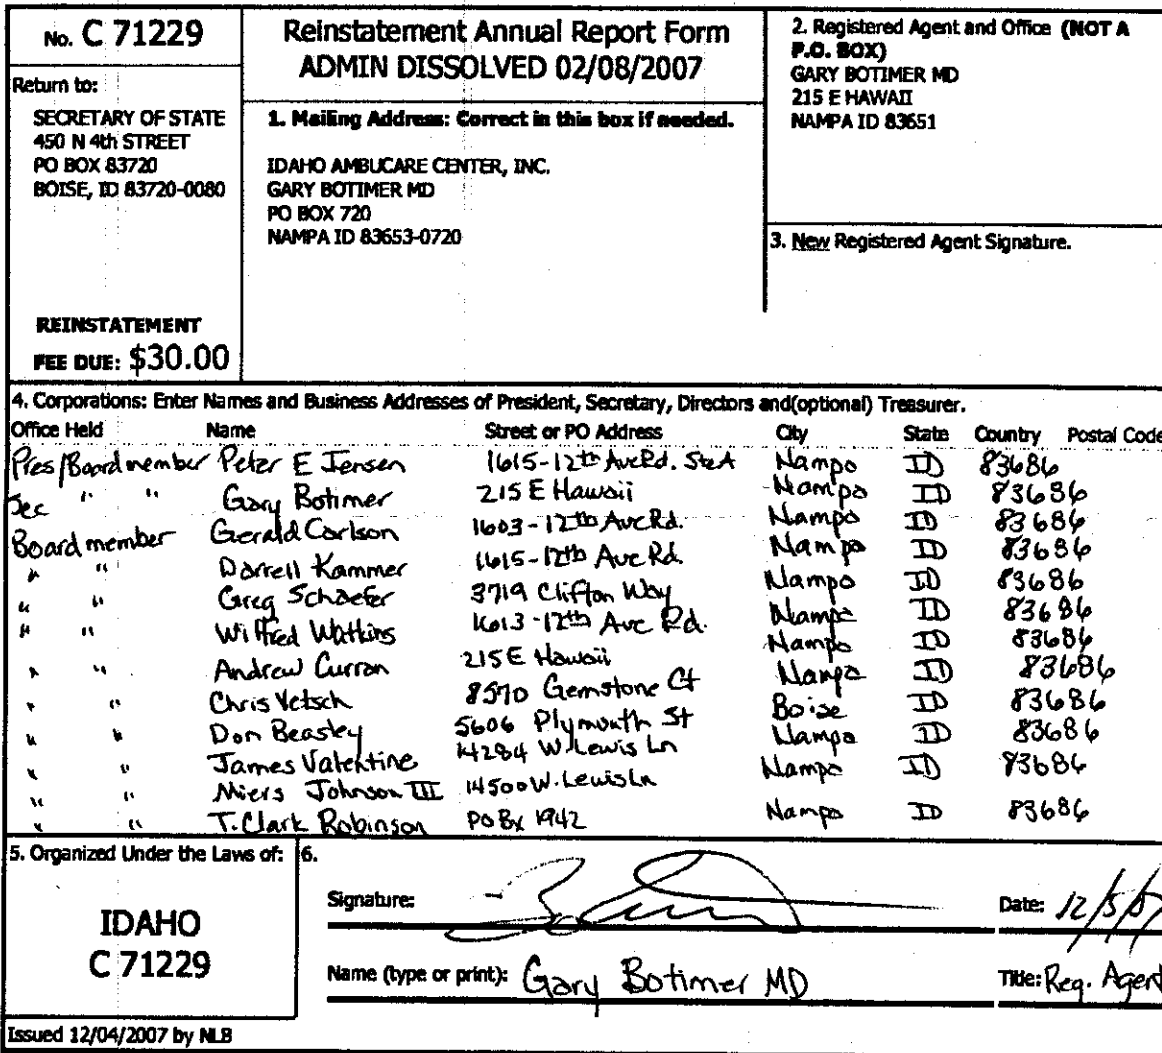 No. C 71229
Return to:
SECRETARY OF STATE
450 N 4th STREET
PO BOX 83720
BOISE, ID 83720-0080
REINSTATEMENT
FEE DUE: $30.00
Reinstatement Annual Report Form
ADMIN DISSOLVED 02/08/2007
1. Mailing Address: Correct in this box if needed.
IDAHO AMBUCARE CENTER, INC.
GARY BOTIMER MD
PO BOX 720
NAMPA ID 83653-0720
2. Registered Agent and Office (NOT A
P.O. BOX)
GARY BOTIMER MD
215 E HAWAII
NAMPA ID 83651
3. New Registered Agent Signature.
4. Corporations: Enter Names and Business Addresses of President, Secretary, Directors and(optional) Treasurer.
Office Held Name Street or PO Address City State Country Postal Code
Pres/Board member Peter E Jensen 1615-12th Ave Rd. Ste A Nampa ID 83686
Sec " " Gary Botimer 215 E Hawaii Nampa ID 83686
Board member Gerald Carlson 1603-12th Ave Rd. Nampa ID 83686
" " Darrell Kammer 1615-12th Ave Rd. Nampa ID 83686
" " Greg Schaefer 3719 Clifton Way Nampa ID 83686
" " Wilfred Watkins 1613-12th Ave Rd. Nampa ID 83686
" " Andrew Curran 215 E Hawaii Nampa ID 83686
" " Chris Vetsch 8570 Gemstone Ct Nampa ID 83686
" " Don Beasley 5606 Plymouth St Boise ID 83686
" " James Valentine 14284 W. Lewis Ln Nampa ID 83686
" " Miers Johnson III 14500 W. Lewis Ln Nampa ID 83686
" " T. Clark Robinson PO Bx 1942 Nampa ID 83686
5. Organized Under the Laws of:
IDAHO
C 71229
6.
Signature: Date: 12/5/07
Name (type or print): Gary Botimer MD Title: Reg. Agent
Issued 12/04/2007 by NLB